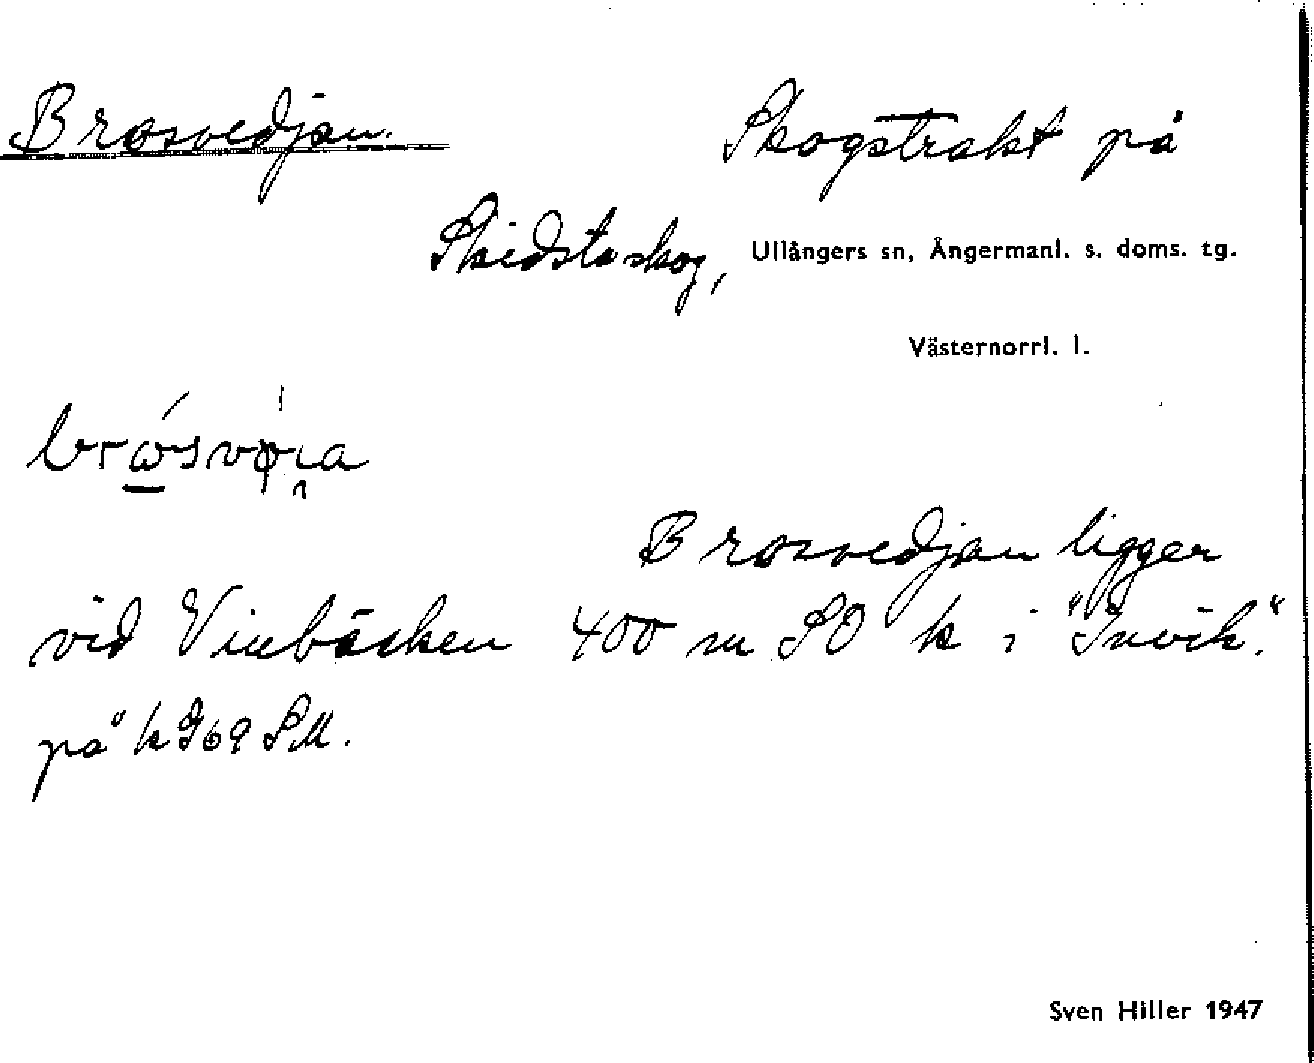 Brosvedjan. Skogstrakt på
Skidsta skog, Ullångers sn, Ångermanl. s. doms. tg.
Västernorrl. l.
Brosvedjan ligger
vid Vinbäcken 400 m SO k i "Invik."
på k 969 SM.
Sven Hiller 1947